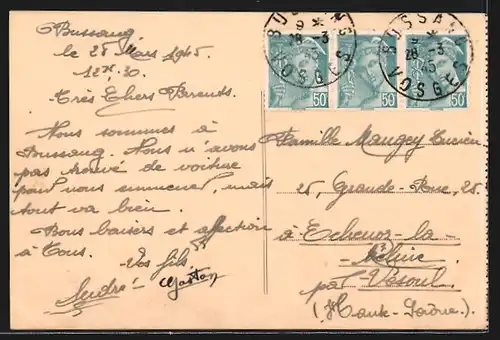 Bussang
le 28 Mars 1945
12H.30
Très Chers Parents.
Nous sommes à
Bussang. Nous n'avons
pas trouvé de voiture
pour nous emmener, mais
tout va bien.
Bons baisers et affection
à Tous.
Vos fils
André Gaston
BUSSANG
VOSGES
9 *
28-3
45
BUSSANG
VOSGES
*
28-3
45
50c
50c
50c
Famille Maugey Lucien
25, Grande-Rue, 25.
à Echenoz-la-
Méline
par Vesoul.
(Haute-Saône.)